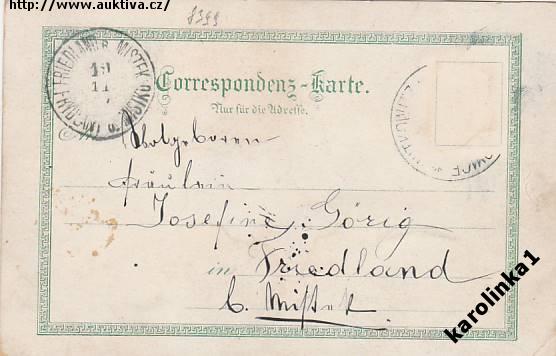 http://www.auktiva.cz/
8399
FRIEDLAND B. MISTEK
19
11
Correspondenz-Karte.
Nur für die Adresse.
Wolgeboren
Fräulein
Josefine Görig
in Friedland
b. Mistek
karolinka1